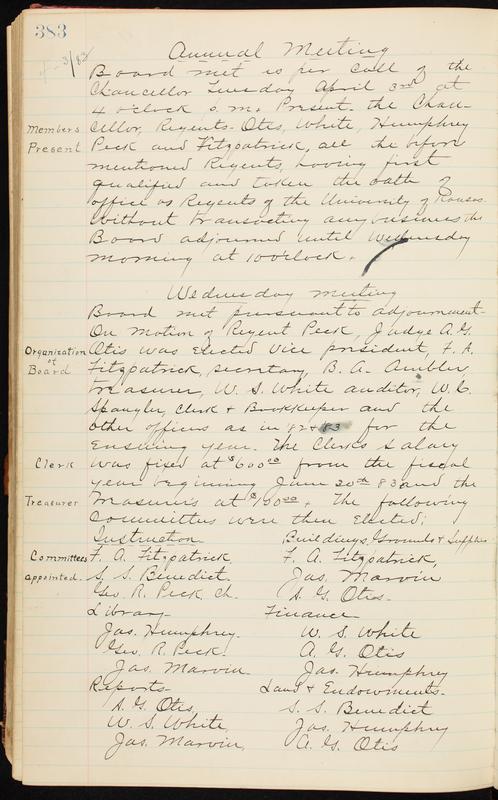 383
3/83
Annual Meeting
Board met as per call of the
Chancellor Tuesday April 3rd at
4 o'clock p.m. Present. the Chan-
Members
Present
cellor, Regents Otis, White, Humphrey
Peck and Fitzpatrick, all the afore
mentioned Regents, having first
qualified and taken the oath of
office as Regents of the University of Kansas
Without transacting any business the
Board adjourned until Wednesday
morning at 10 o'clock.
Wednesday meeting
Board met pursuant to adjournment.
On motion of Regent Peck, Judge A. G.
Organization
of
Board
Otis was elected vice president, F. A.
Fitzpatrick, secretary, B. A. Ambler,
treasurer, W. S. White auditor, W. C.
Spangler, Clerk & Bookkeeper and the
other officers as in '82 & 83 for the
ensuing year. The Clerk's salary
Clerk
was fixed at $600.00 from the fiscal
year beginning June 20th 83 and the
Treasurer
Treasurer's at $150.00. The following
committees were then elected:
Instruction
Buildings, Grounds & Supplies
Committees
appointed.
F. A. Fitzpatrick.
S. S. Benedict.
Geo. R. Peck Ch.
F. A. Fitzpatrick,
Jas. Marvin
A. G. Otis.
Library-
Jas. Humphrey.
Geo. R. Peck.
Jas. Marvin
Finance-
W. S. White
A. G. Otis
Jas. Humphrey
Reports-
A. G. Otis,
W. S. White,
Jas. Marvin,
Land & Endowments-
S. S. Benedict
Jas. Humphrey
A. G. Otis